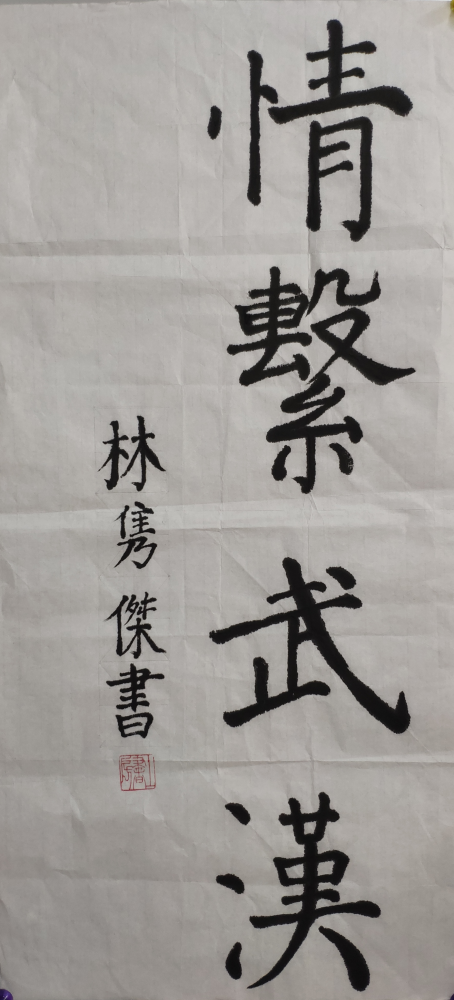 情繫武漢
林隽傑書